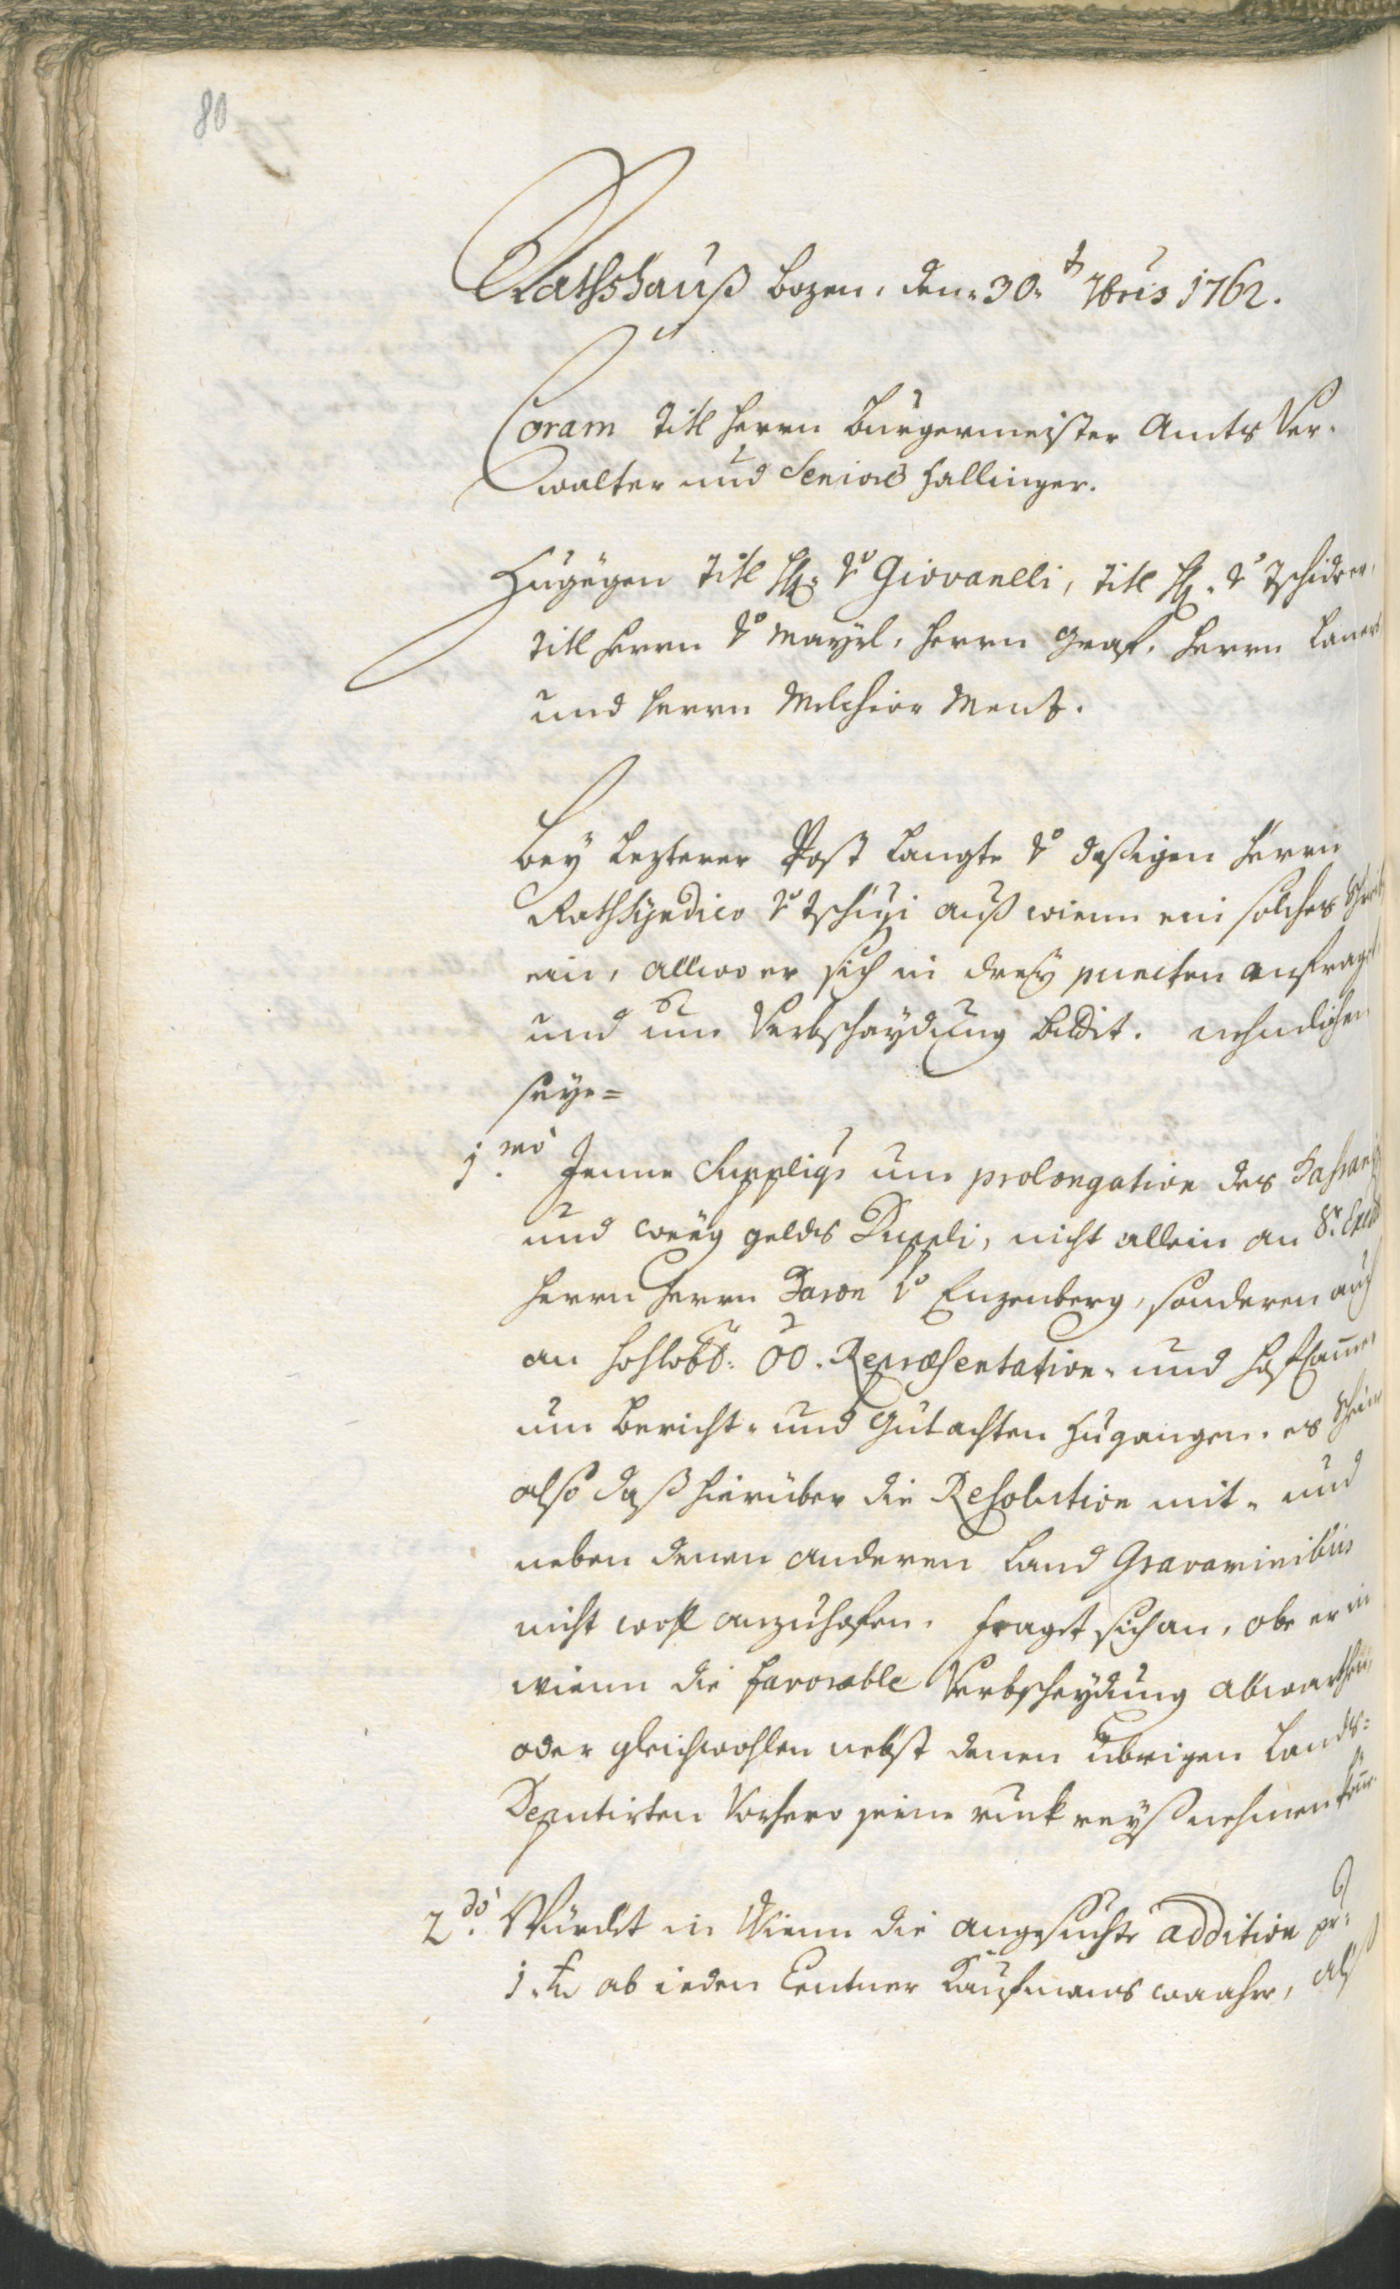 80
Rathshauß Bozen, den 30t 7bris 1762.
Coram Titl Herrn Burgermeister Amts Ver-
walter und Seniore Hallinger.
Zugegen Titl H: v Giovanelli, Titl H: v Tschidrer,
Titl Herrn v Mayrl, Herrn Graf, Herrn Laner
und Herrn Melchior Menz.
Bey Lezterer Post Langte v dasigen Herrn
RathsSyndico v Tschigi auß wienn ein solches
ein, allwo er sich in drey puncten anfraget
und um Verbschaydung bittet. nehmlichen
seye=
1mo Jenne Supplique um prolongation des
und weeg gelds Duppli, nicht allein an Sr. Excell
Herrn Herrn Baron v Enzenberg, sonderen auch
an hochlobl: OÖ. Repræsentation- und Hofcammer
um Bericht- und Gutachten zugangen. es Scheine
also daß hierüber die Resolution mit- und
neben denen anderen Land Gravaminibus
nicht wohl anzuhofen. fraget sich an, ob er in
wienn die favorable Verbscheydung abwarthen,
oder gleichwohlen nebst denen übrigen Lands-
Deputirten Vorhero seine ruck reyß nehmen
2do. Würdet in Wienn die angesuchte addition pr:
1. x ab ieden Centner Kaufmans waahr, als